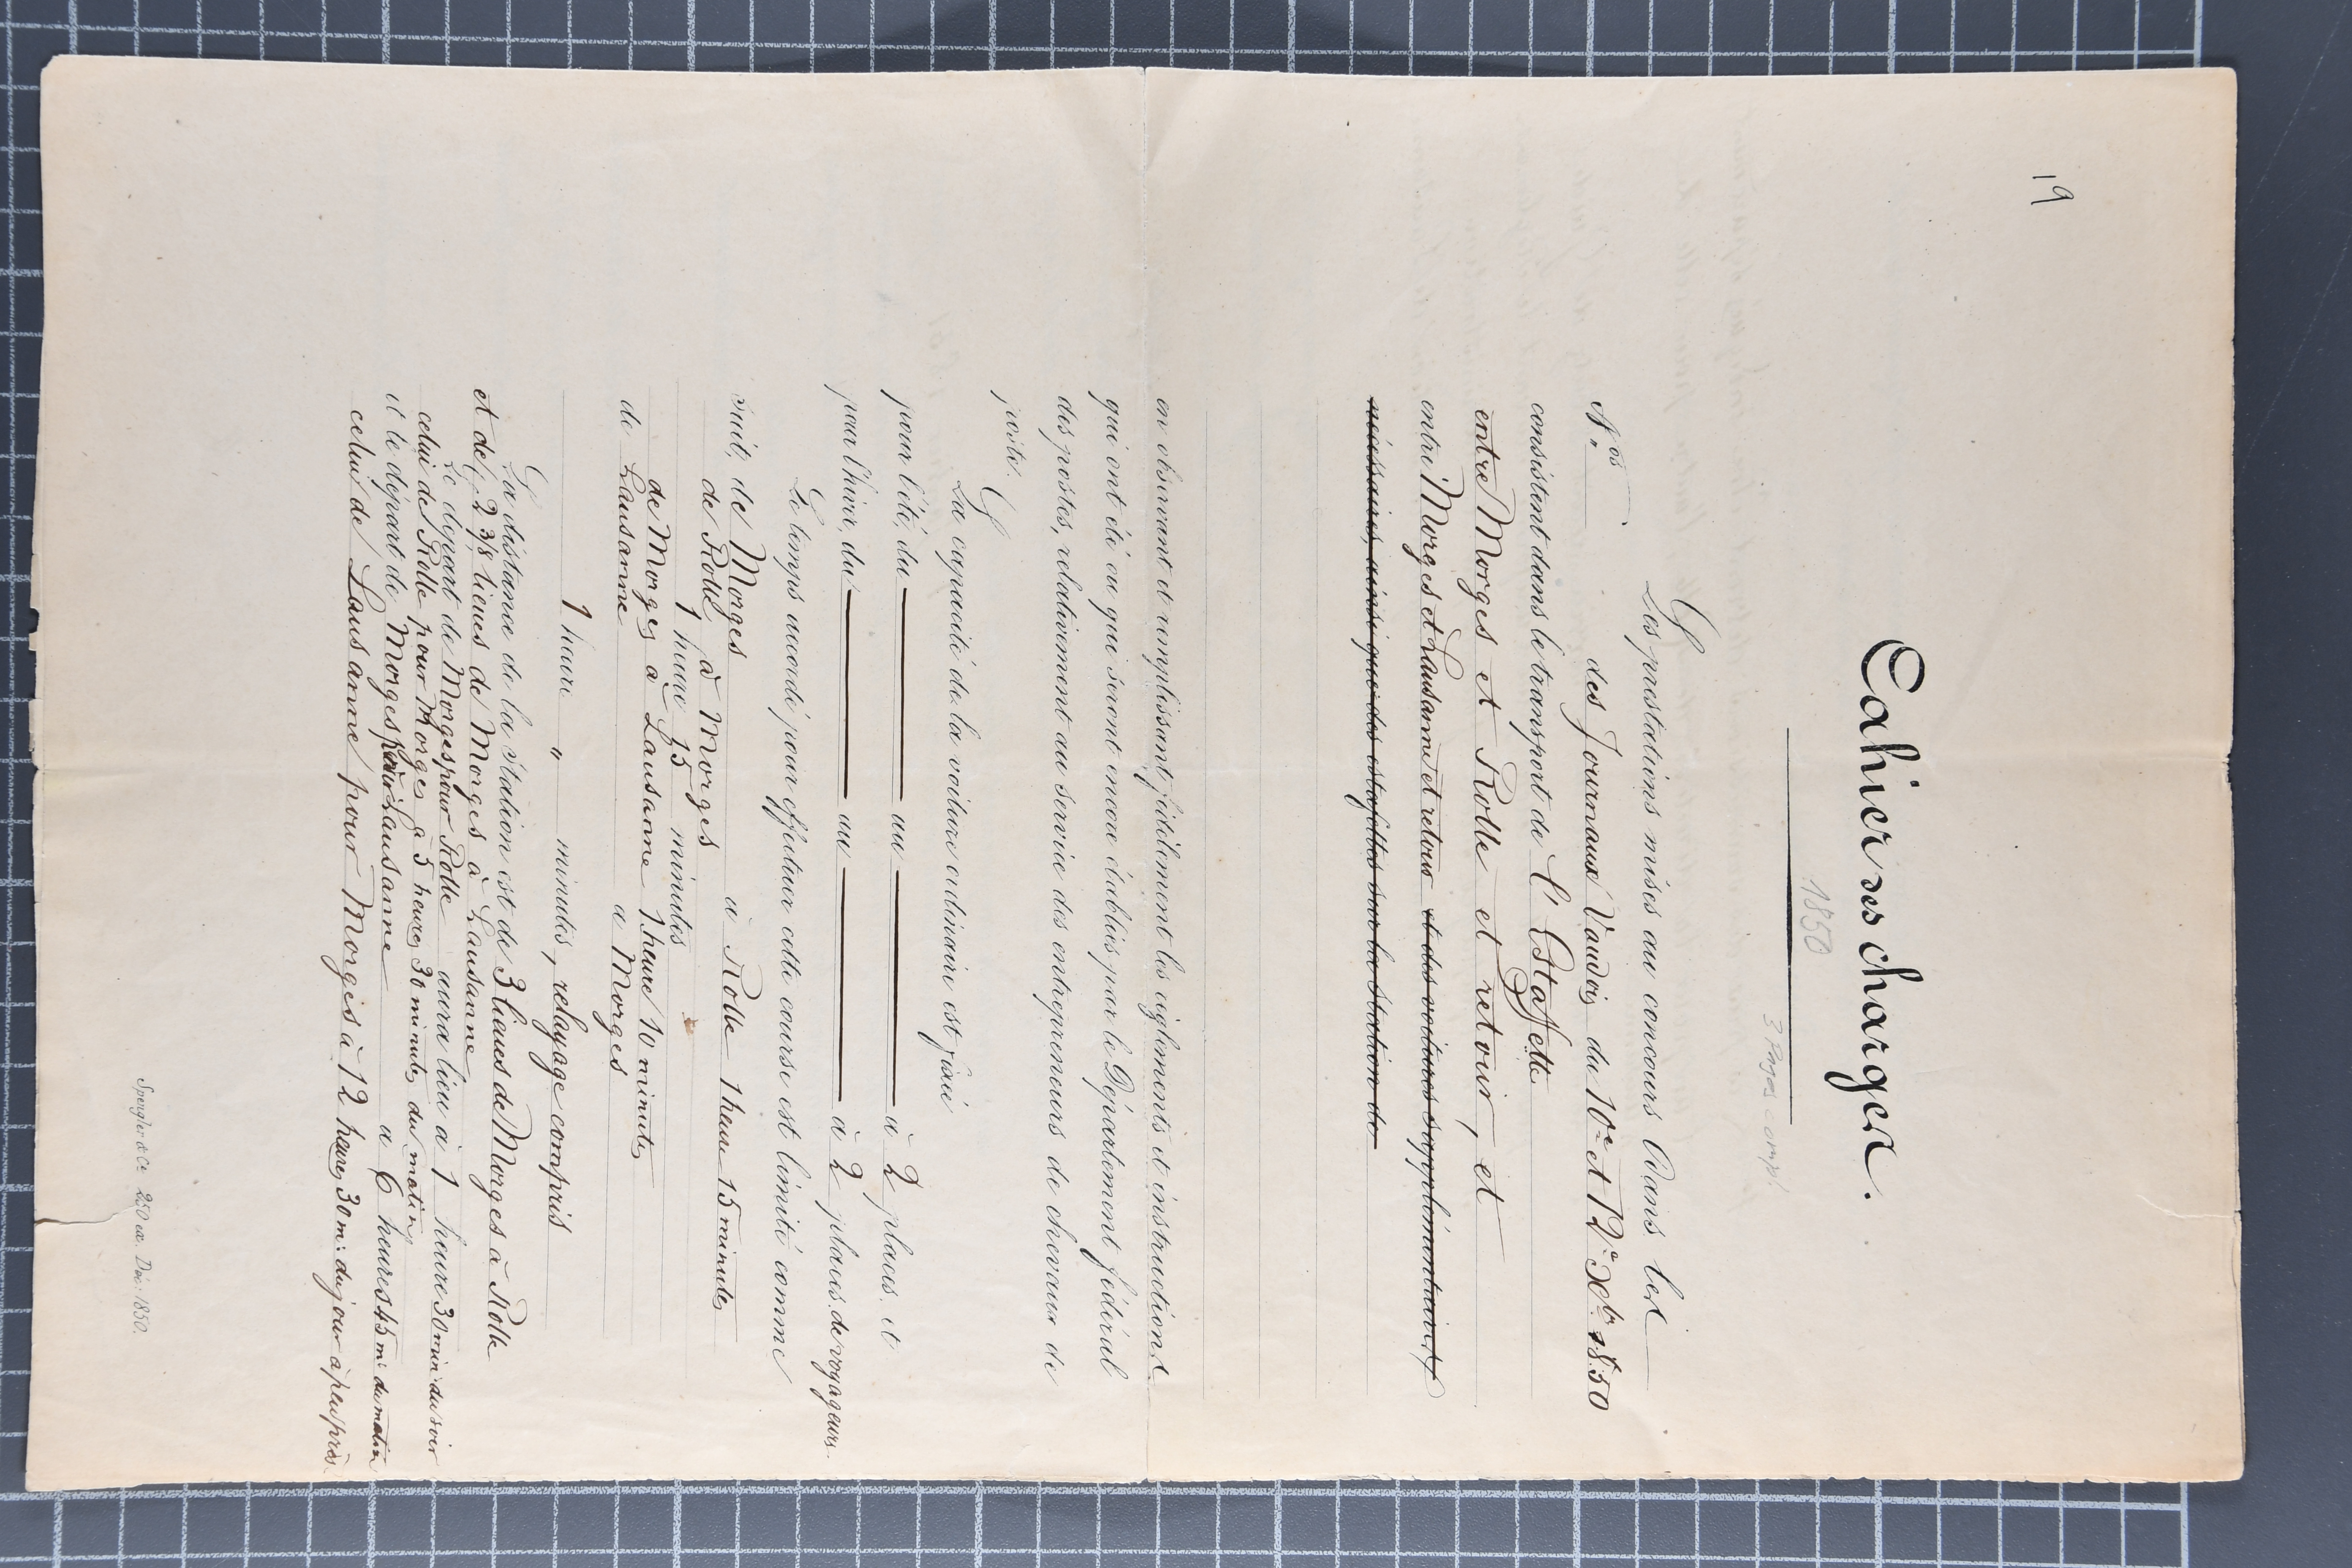 19
Cahier des charges.
1850
3 Pages compl.
Les prestations mises au concours dans les
Nos des Journaux Vaudois du 10e et 12e Xbre 1850
consistent dans le transport de l'Estaffette
entre Morges et Rolle et retour, et
entre Morges et Lausanne et retour et des voitures supplémentaires
nécessaires, ainsi que des estafettes sur la station de
en observant et remplissant fidèlement les règlements et instructions
qui ont été ou qui seront encore établis par le Département fédéral
des postes, relativement au service des entrepreneurs de chevaux de
poste.
La capacité de la voiture ordinaire est fixée
pour l'été, du au à 2 places, et
pour l'hiver, du au à 2 places de voyageurs.
Le temps accordé pour effectuer cette course est limité comme
suit, de Morges à Rolle 1 heure 15 minutes
de Rolle à Morges
1 heure 15 minutes
de Morges à Lausanne 1 heure 10 minutes
de Lausanne à Morges
1 heure " minutes, relayage compris
La distance de la station est de 3 lieues de Morges à Rolle
et de 2 3/8 lieues de Morges à Lausanne
Le départ de Morges pour Rolle aura lieu à 1 heure 30 min: du soir
celui de Rolle pour Morges à 5 heures 30 minutes du matin
et le départ de Morges pour Lausanne à 6 heures 45 m: du matin
celui de Lausanne pour Morges à 12 heures 30 m: du jour à peu près
Spengler & Ce 250 ex. Déc: 1850.